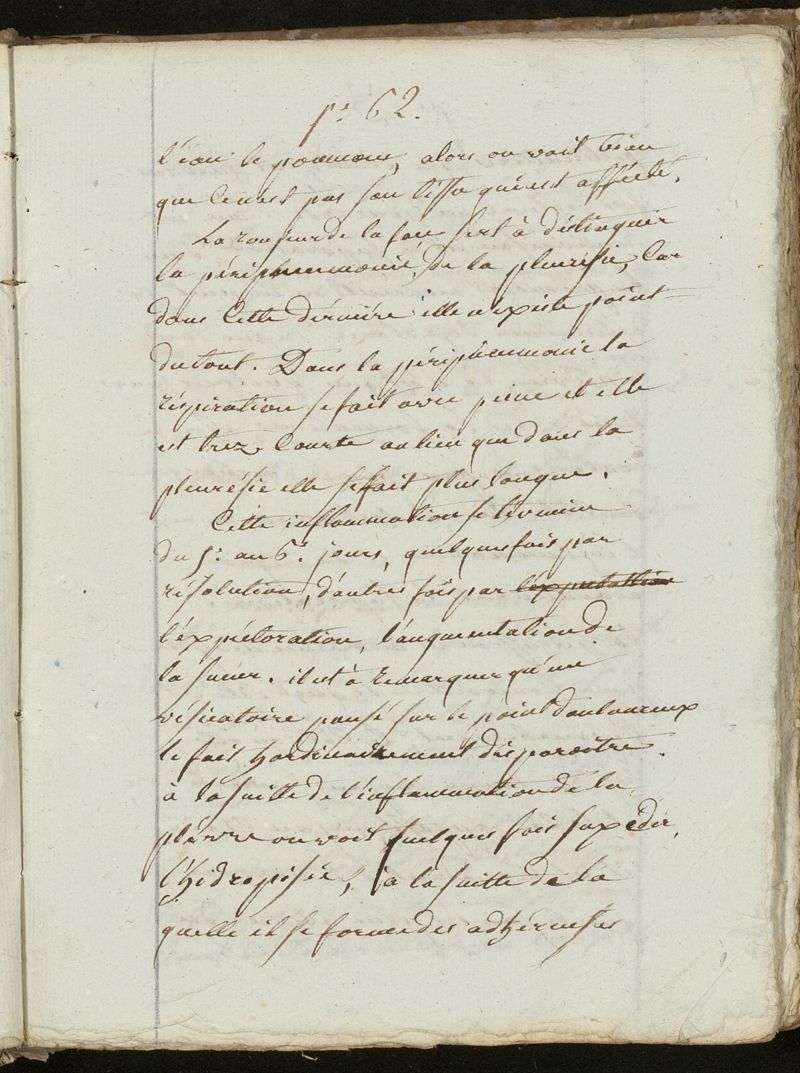 p.e 62.
l'eau le poumon, alors on voit bien
que ce n'est pas son tissu qui est affecté.
La rougeur de la face sert à distinguer
la péripneumonie, de la pleurésie, Car
dans Cette dérnière elle n'existe point
du tout. Dans la péripneumonie la
réspiration se fait avec peine et elle
est trez. Courte au lieu que dans la
pleurésie elle se fait plus longue.
Cette inflammation se termine
du 5.e au 6.e jours, quelques fois par
résolution, d'autres fois par
l'éxpéctoration, l'augmentation de
la sueur. il est à remarquer qu'un
vésicatoire pausé sur le point douloureux
le fait hordinairement disparoître.
à la suitte de l'inflammation de la
plèvre on voit quelques fois supcéder,
l'hidropisie, à la suitte de la
quelle il se forme des adhérenses